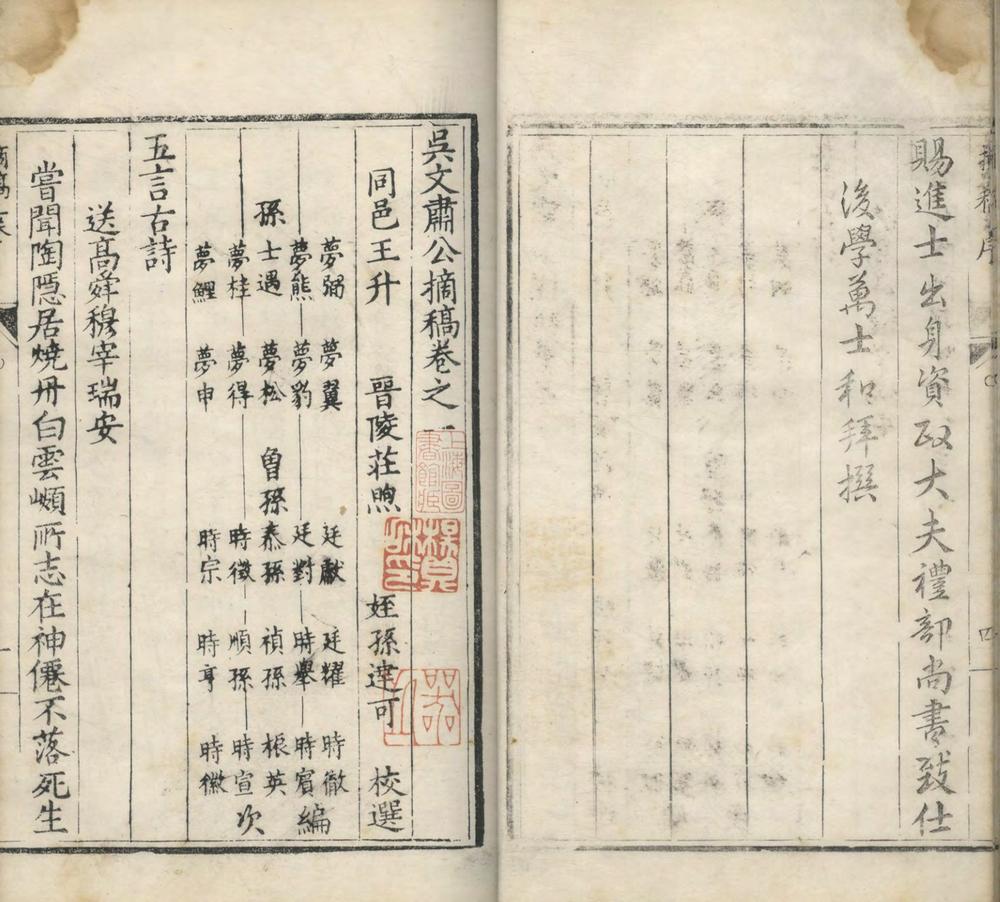 賜進士出身資政大夫禮部尚書致仕
後學萬士和拜撰
四
吳文肅公摘稿卷之一
同邑王升 晉陵莊煦 姪孫達可 校選
夢弼 夢翼 廷獻 廷耀 時徹
夢熊 夢豹 廷對 時舉 時賓 編
孫 士遇 夢松 曾孫 泰孫 禎孫 根英
夢桂 夢得 時徵 順孫 時宣 次
夢鯉 夢申 時宗 時亨 時徽
五言古詩
送高舜穆宰瑞安
嘗聞陶隱居燒丹白雲巔所志在神僊不落死生
上海圖書館藏